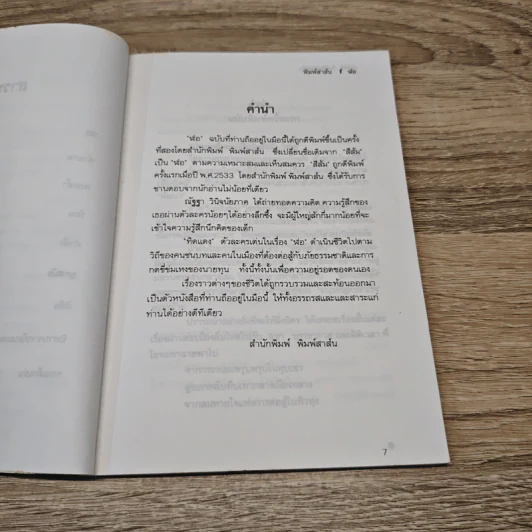 พิมพ์สาส์น ฬ่อ
คำนำ
"ฬ่อ" ฉบับที่ท่านถืออยู่ในมือนี้ได้ถูกตีพิมพ์ขึ้นเป็นครั้ง
ที่สองโดยสำนักพิมพ์ พิมพ์สาส์น ซึ่งเปลี่ยนชื่อเดิมจาก "สีส้ม"
เป็น "ฬ่อ" ตามความเหมาะสมและเห็นสมควร "สีส้ม" ถูกตีพิมพ์
ครั้งแรกเมื่อปี พ.ศ.2533 โดยสำนักพิมพ์ พิมพ์สาส์น ซึ่งได้รับการ
ขานตอบจากนักอ่านไม่น้อยทีเดียว
ณัฐฐา วินิจนัยภาค ได้ถ่ายทอดความคิด ความรู้สึกของ
เธอผ่านตัวละครน้อยๆได้อย่างลึกซึ้ง จะมีผู้ใหญ่สักกี่มากน้อยที่จะ
เข้าใจความรู้สึกนึกคิดของเด็ก
"ทิดแดง" ตัวละครเด่นในเรื่อง "ฬ่อ" ดำเนินชีวิตไปตาม
วิถีของคนชนบทและคนในเมืองที่ต้องต่อสู้กับภัยธรรมชาติและการ
กดขี่ข่มเหงของนายทุน ทั้งนี้ทั้งนั้นเพื่อความอยู่รอดของตนเอง
เรื่องราวต่างๆของชีวิตได้ถูกรวบรวมและสะท้อนออกมา
เป็นตัวหนังสือที่ท่านถืออยู่ในมือนี้ ให้ทั้งอรรถรสและและสาระแก่
ท่านได้อย่างดีทีเดียว
สำนักพิมพ์ พิมพ์สาส์น
7